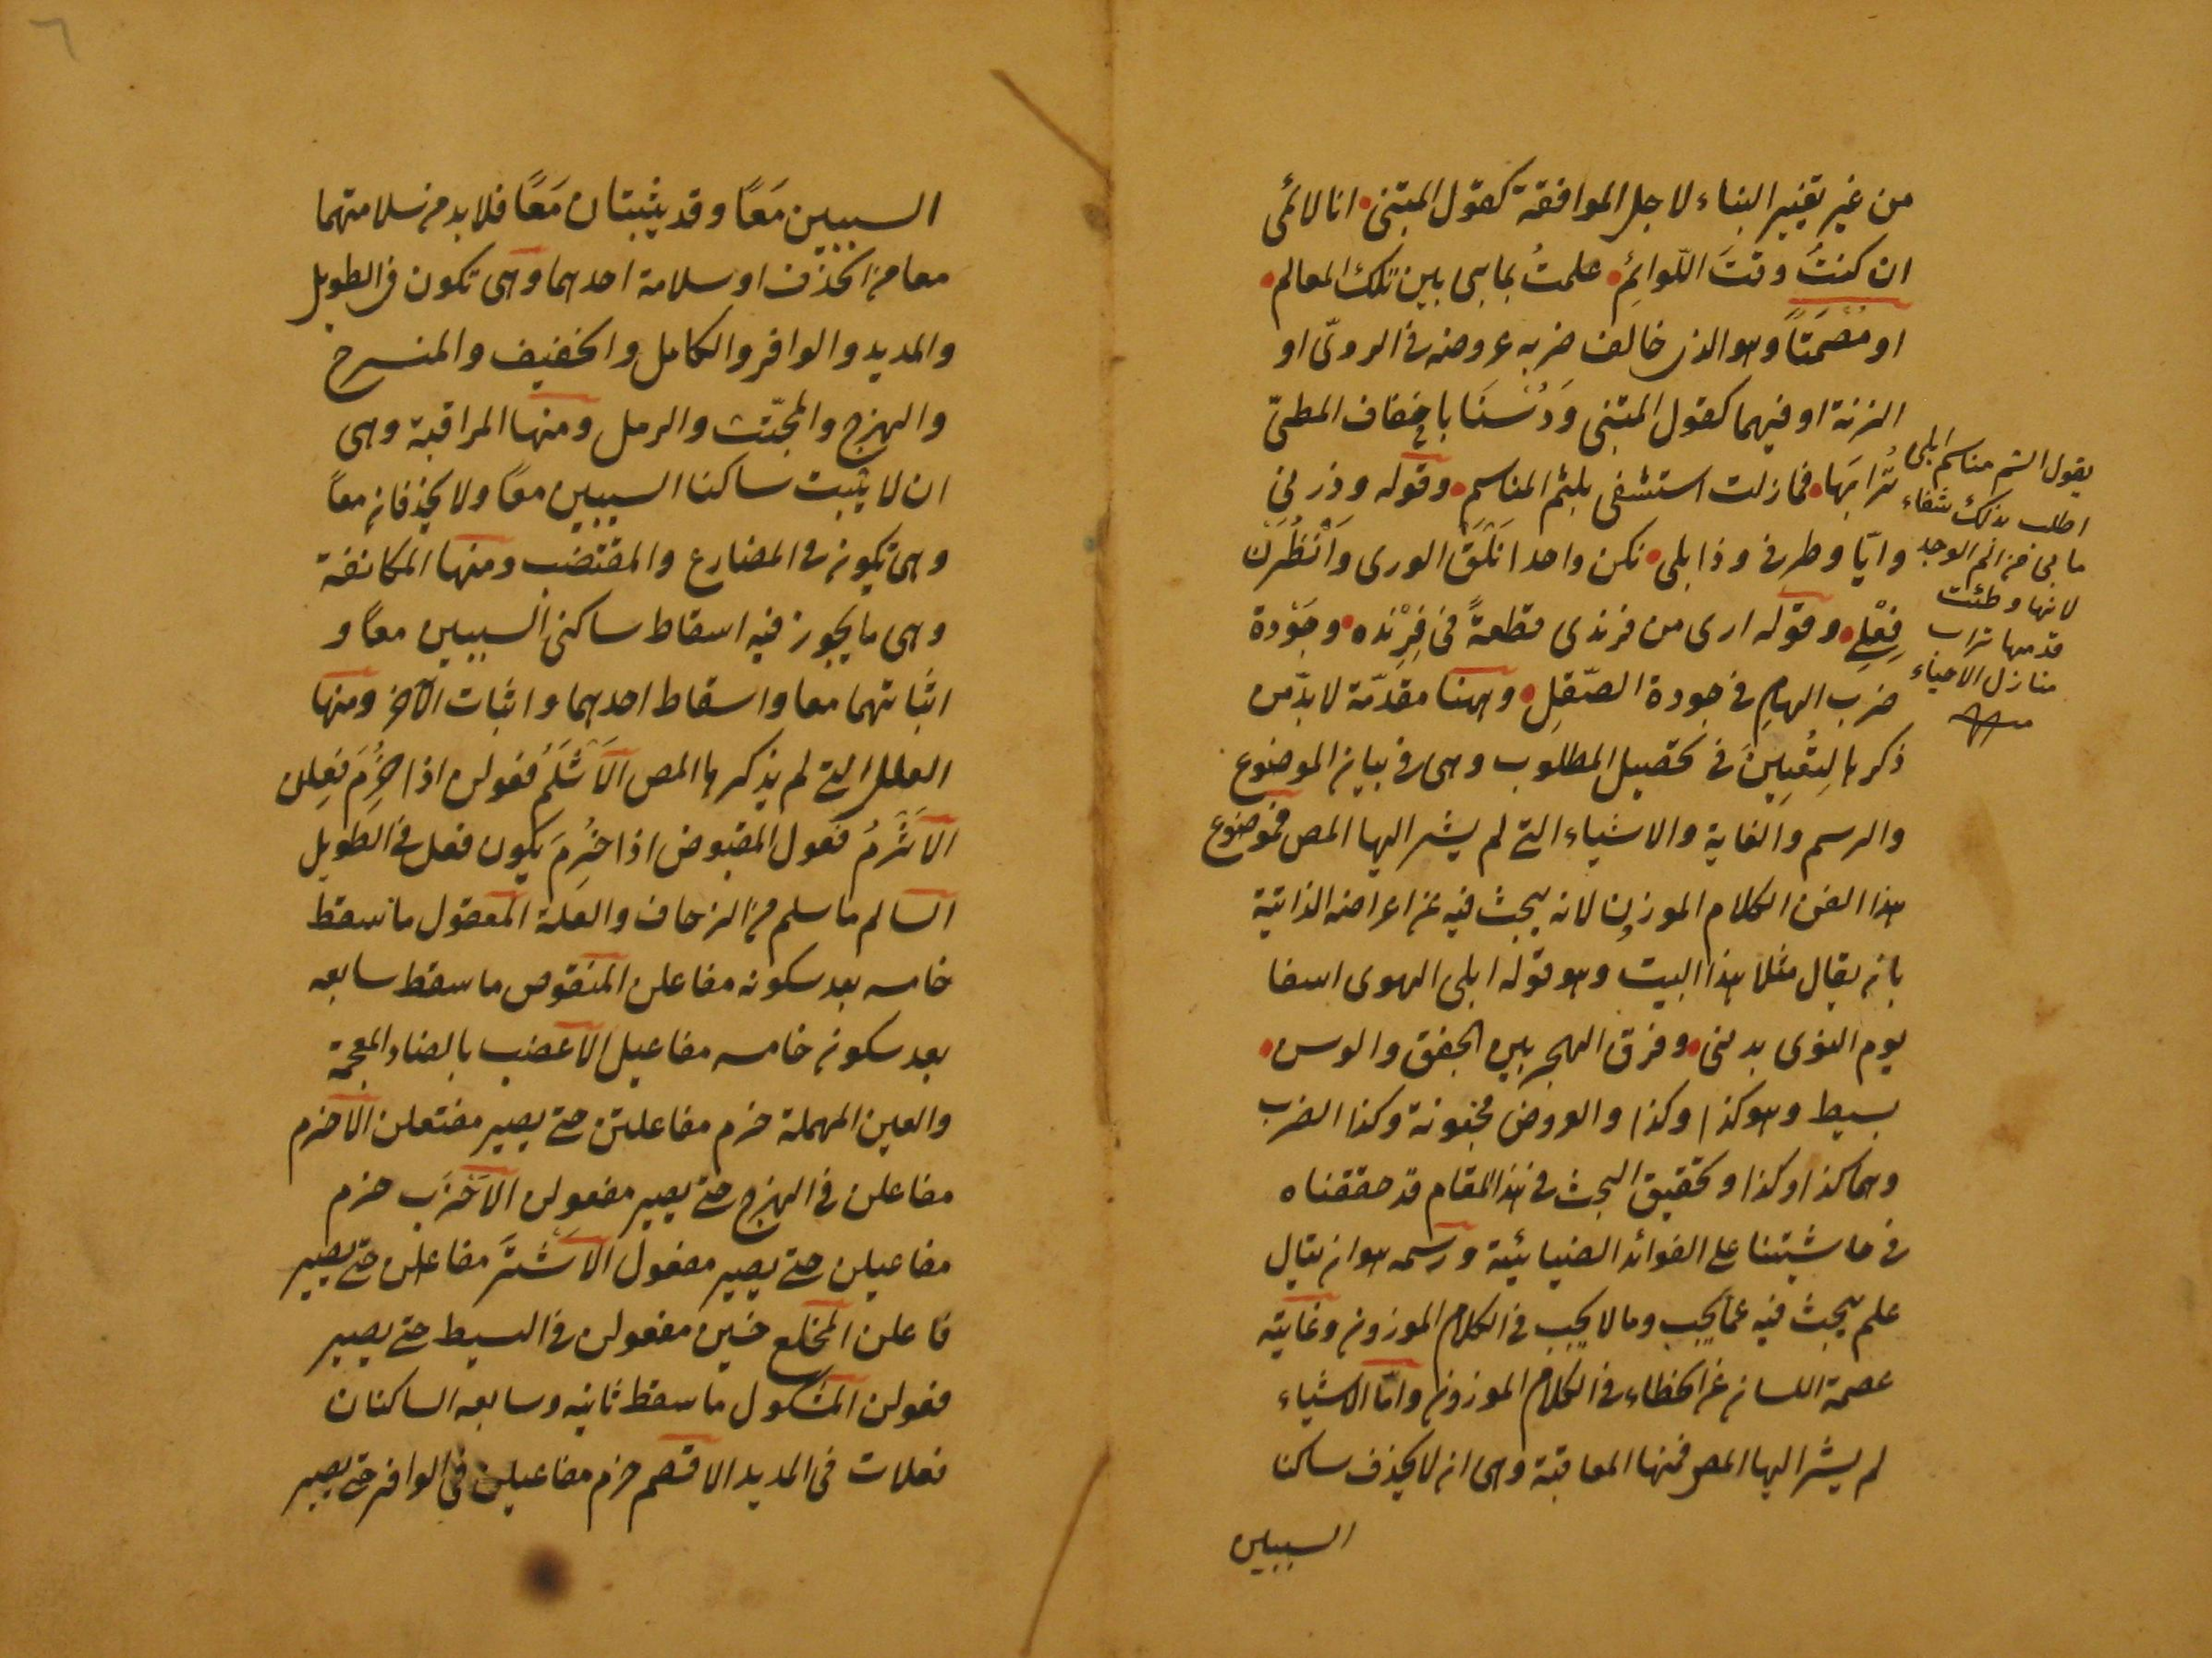 من غير تغيير البناء لاجل الموافقة كقول المتنبى انا لائمى
ان كنتُ وقتَ اللّوائِمِ علمتُ بما بى بين تلك المعالم
او مُصْمَتًا وهو الذى خالف ضربه عروضه فى الروىّ او
الزنة او فيهما كقول المتنبى وَدُسْنَا باخفاف المطىّ
تُرَابَهَا فما زلت استشفى بلثم المناسم وقوله وذرنى
وايّا وطرفى وذابلى نكن واحدا نَلْقَ الورى وَانْظُرَنْ
فِعْلِى وقوله ارى من فرندى قطعةً فى فِرِنْده وجَوْدة
ضربَ الهامِ فى جودة الصّقلِ وههنا مقدّمة لابدّ من
ذكرها لِتُعِينَ فى تحصيل المطلوب وهى فى بيان الموضوع
والرسم والغاية والاشياء التى لم يشر اليها المص فموضوع
هذا الفن الكلام الموزون لانه يبحث فيه عن اعراضه الذاتية
بان يقال مثلا هذا البيت وهو قوله ابلى الهوى اسفا
يوم النوى بدنى وفرق الهجر بين الجفن والوسن
بسيط وهو كذا وكذا والعروض مخبونة وكذا الضرب
وهما كذا وكذا وتحقيق البحث فى هذا المقام قد حققناه
فى حاشيتنا على الفوائد الضيائية ورسمه هو ان يقال
علم يبحث فيه عما يجب وما لا يجب فى الكلام الموزون وغايته
عصمة اللسان عن الخطاء فى الكلام الموزون وامّا الاشياء
لم يشر اليها المص فمنها المعاقبة وهى ان لا يحذف ساكنا
السببين
يقول الثم مناسم ابلى
اطلب بذلك شفاء
ما بى من الم الوجد
لانها وطئت
قدمها تراب
منازل الاحباء
السببين مَعًا وقد يثبتان مَعًا فلابد من سلامتهما
معا من الحذف او سلامة احدهما وهى تكون فى الطويل
والمديد والوافر والكامل والخفيف والمنسرح
والهزج والمجتث والرمل ومنها المراقبة وهى
ان لا يثبت ساكنا السببين معًا ولا يحذفان معًا
وهى تكون فى المضارع والمقتضب ومنها المكانفة
وهى ما يجوز فيه اسقاط ساكنى السببين معًا و
اثباتهما معا واسقاط احدهما واثبات الآخر ومنها
العلل التى لم يذكرها المص الَاثْلَمُ فعولن اذا خُرِمَ فعِلن
الَاثْرَمُ فعول المقبوض اذا خُرِمَ يكون فعل فى الطويل
السالم ما سلم من الزحاف والعلة المعقول ما سقط
خامسه بعد سكونه مفاعلن المنقوص ما سقط سابعه
بعد سكون خامسه مفاعيل الاعضب بالضاد المعجمة
والعين المهملة خرم مفاعلتن حتى يصير مفتعلن الاخرم
مفاعلن فى الهزج حتى يصير مفعولن الاخرَب خرم
مفاعيلن حتى يصير مفعول الَاشْتَر مفاعلن حتى يصير
فاعلن المخلع خبن مفعولن فى البسيط حتى يصير
فعولن المشكول ما سقط ثانيه وسابعه الساكنان
فعلات فى المديد الاقصم خرم مفاعيلن فى الوافر حتى يصير
٦